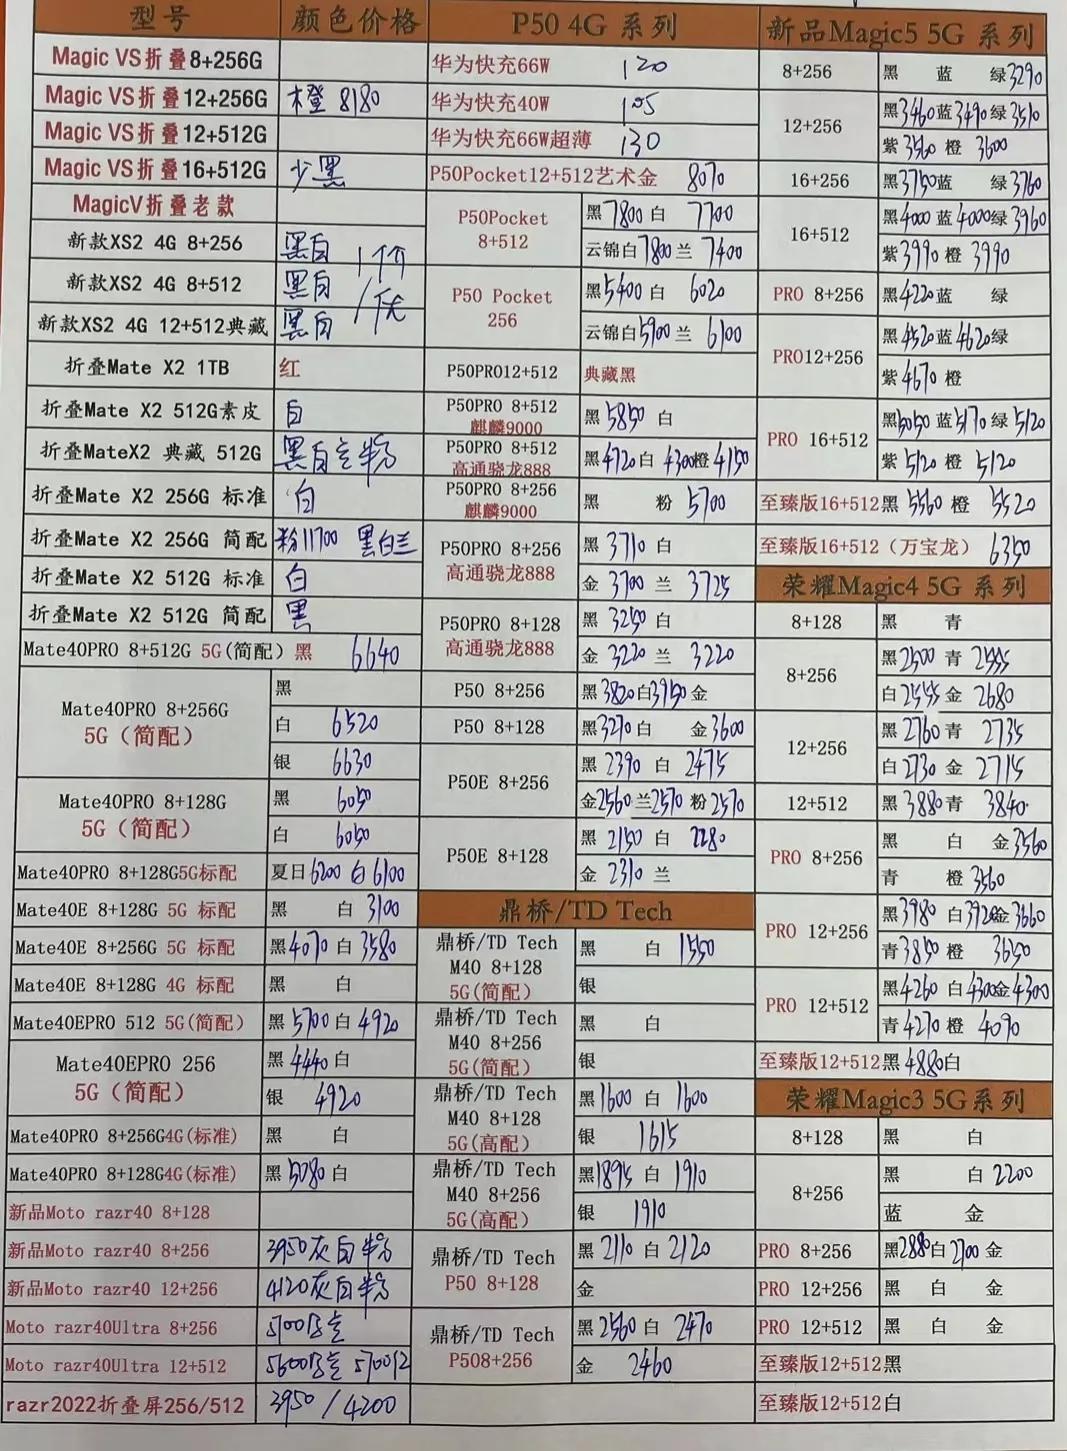 型号 颜色价格
Magic VS折叠8+256G
Magic VS折叠12+256G 橙 8180
Magic VS折叠12+512G
Magic VS折叠16+512G 少黑
MagicV折叠老款
新款XS2 4G 8+256 黑白
新款XS2 4G 8+512 黑白
新款XS2 4G 12+512典藏 黑白
折叠Mate X2 1TB 红
折叠Mate X2 512G素皮 白
折叠MateX2 典藏 512G 黑白
折叠Mate X2 256G 标准 白
折叠Mate X2 256G 简配 粉11700 黑白兰
折叠Mate X2 512G 标准 白
折叠Mate X2 512G 简配 黑
Mate40PRO 8+512G 5G(简配) 黑 6640
Mate40PRO 8+256G
5G（简配）
黑
白 6520
银 6630
Mate40PRO 8+128G
5G（简配）
黑 6050
白 6050
Mate40PRO 8+128G5G标配 夏日6200 白6100
Mate40E 8+128G 5G 标配 黑 白 3100
Mate40E 8+256G 5G 标配 黑4070 白 3580
Mate40E 8+128G 4G 标配 黑 白
Mate40EPRO 512 5G(简配) 黑 5700白 4920
Mate40EPRO 256
5G（简配）
黑 4440 白
银 4920
Mate40PRO 8+256G4G(标准) 黑 白
Mate40PRO 8+128G4G(标准) 黑 5080 白
新品Moto razr40 8+128
新品Moto razr40 8+256 3950灰白粉
新品Moto razr40 12+256 4120灰白粉
Moto razr40Ultra 8+256 5100
Moto razr40Ultra 12+512 5600
razr2022折叠屏256/512 3950 / 4200
P50 4G 系列
华为快充66W 120
华为快充40W 105
华为快充66W超薄 130
P50Pocket12+512艺术金 8070
P50Pocket
8+512
黑7800 白 7700
云锦白7800 兰 7400
P50 Pocket
256
黑5400 白 6020
云锦白5900 兰 6100
P50PRO12+512 典藏黑
P50PRO 8+512
麒麟9000
黑 5850 白
P50PRO 8+512
高通骁龙888
黑4720白 4300橙4150
P50PRO 8+256
麒麟9000
黑 粉 5700
P50PRO 8+256
高通骁龙888
黑 3710 白
金 3700 兰 3725
P50PRO 8+128
高通骁龙888
黑 3250 白
金 3220 兰 3220
P50 8+256 黑3820白3950金
P50 8+128 黑3270白 金3600
P50E 8+256
黑 2390 白 2475
金2560兰2570 粉2570
P50E 8+128
黑 2150 白 2280
金 2310 兰
鼎桥/TD Tech
鼎桥/TD Tech
M40 8+128
5G(简配)
黑 白 1550
银
鼎桥/TD Tech
M40 8+256
5G(简配)
黑 白
银
鼎桥/TD Tech
M40 8+128
5G(高配)
黑1600 白 1600
银 1615
鼎桥/TD Tech
M40 8+256
5G(高配)
黑1895 白 1910
银 1910
鼎桥/TD Tech
P50 8+128
黑 2110 白 2120
金
鼎桥/TD Tech
P508+256
黑2560 白 2470
金 2460
新品Magic5 5G 系列
8+256 黑 蓝 绿3290
12+256
黑3460蓝3490绿3510
紫3560 橙 3600
16+256 黑3750蓝 绿3760
16+512
黑4000 蓝4000绿3960
紫3990橙 3990
PRO 8+256 黑4220蓝 绿
PRO12+256
黑4520蓝4620绿
紫4670 橙
PRO 16+512
黑5050蓝5170绿5120
紫5120 橙 5120
至臻版16+512黑 5560 橙 5520
至臻版16+512（万宝龙） 6350
荣耀Magic4 5G 系列
8+128 黑 青
8+256
黑2500 青 2555
白2555金 2680
12+256
黑2760青 2735
白2730金 2715
12+512 黑3880青 3840
PRO 8+256
黑 白 金3560
青 橙 3560
PRO 12+256
黑3980 白3920金3660
青3850 橙 3650
PRO 12+512
黑4260 白4300金4300
青4270 橙 4090
至臻版12+512黑 4880白
荣耀Magic3 5G系列
8+128 黑 白
8+256
黑 白 2200
蓝 金
PRO 8+256 黑2880白2700 金
PRO 12+256 黑 白 金
PRO 12+512 黑 白 金
至臻版12+512黑
至臻版12+512白